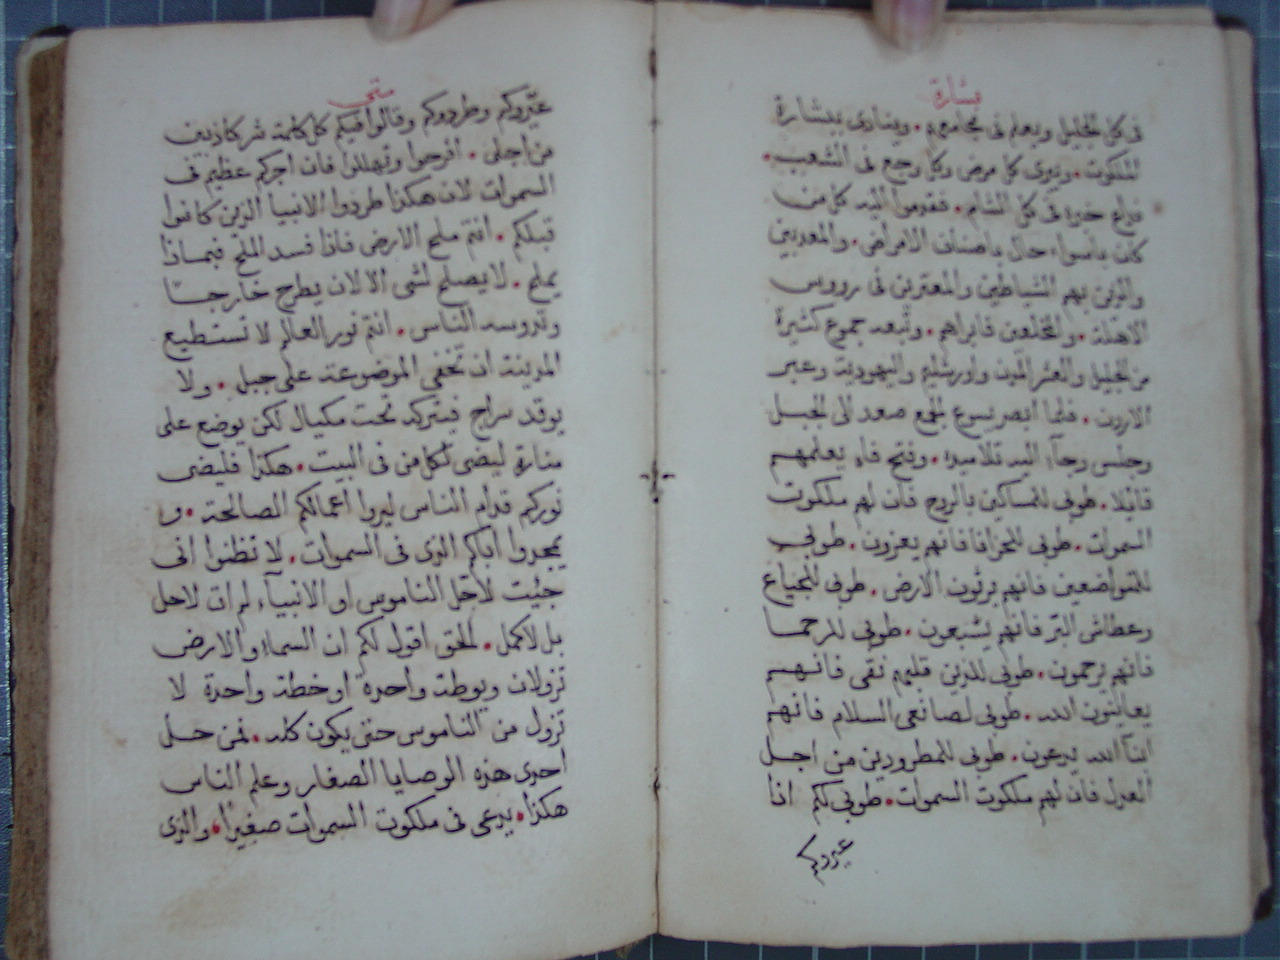 بشارة
فى كل الجليل ويعلم فى مجامعهم. وينادى ببشارة
الملكوت. ويبرى كل مرض وكل وجع فى الشعب.
فذاع خبره فى كل الشام. فقدموا اليه كل من
كان باسواء حال باصناف الامراض. والمعذبين
والذين بهم الشياطين والمعترين فى رووس
الاهلة. والمخلعين فابراهم. وتبعه جموع كثيرة
من الجليل والعشر المدن واورشليم واليهودية وعبر
الاردن. فلما ابصر يسوع الجمع صعد الى الجبل
وجلس وجآء اليه تلاميذه. وفتح فاه يعلمهم
قايلا. طوبى للمساكين بالروح فان لهم ملكوت
السموات. طوبى للحزانا فانهم يعزون. طوبى
للمتواضعين فانهم يرثون الارض. طوبى للجياع
وعطاش البر فانهم يشبعون. طوبى للرحما
فانهم يرحمون. طوبى للذين قلبهم نقى فانهم
يعاينون الله. طوبى لصانعى السلام فانهم
ابنآ الله يدعون. طوبى للمطرودين من اجل
العدل فان لهم ملكوت السموات. طوبى لكم اذا
عيروكم
متى
عيّروكم وطردوكم وقالوا فيكم كل كلمة شر كاذبين
من اجلى. افرحوا وتهللوا فان اجركم عظيم فى
السموات لان هكذا طردوا الانبيا الذين كانوا
قبلكم. انتم ملح الارض فاذا فسد الملح فبماذا
يملح. لا يصلح لشى الا لان يطرح خارجًا
وتدوسه الناس. انتم نور العالم لا تستطيع
المدينة ان تخفى الموضوعة على جبل. ولا
يوقد سراج فيترك تحت مكيال لكن يوضع على
منارة ليضى لكل من فى البيت. هكذا فليضى
نوركم قدام الناس ليروا اعمالكم الصالحة. و
يمجدوا اباكم الذى فى السموات. لا تظنوا انى
جئيت لأحل الناموس او الانبيآء لم ات لاحل
بل لاكمل. الحق اقول لكم ان السماء والارض
تزولان ويوطة واحدة او خطة واحدة لا
تزول من الناموس حتى يكون كله. فمن حل
احدى هذه الوصايا الصغار وعلم الناس
هكذا. يدعى فى ملكوت السموات صغيرًا. والذى